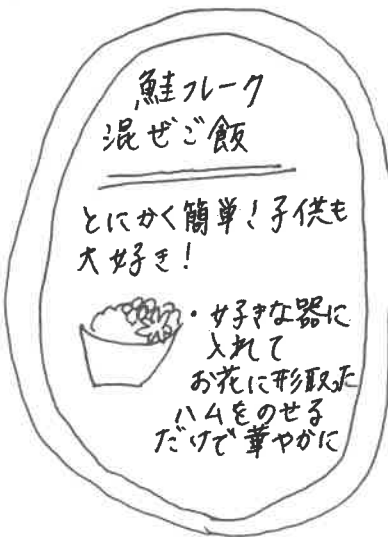 鮭フレーク
混ぜご飯
とにかく簡単！子供も
大好き！
・好きな器に
入れて
お花に形取った
ハムをのせる
だけで華やかに